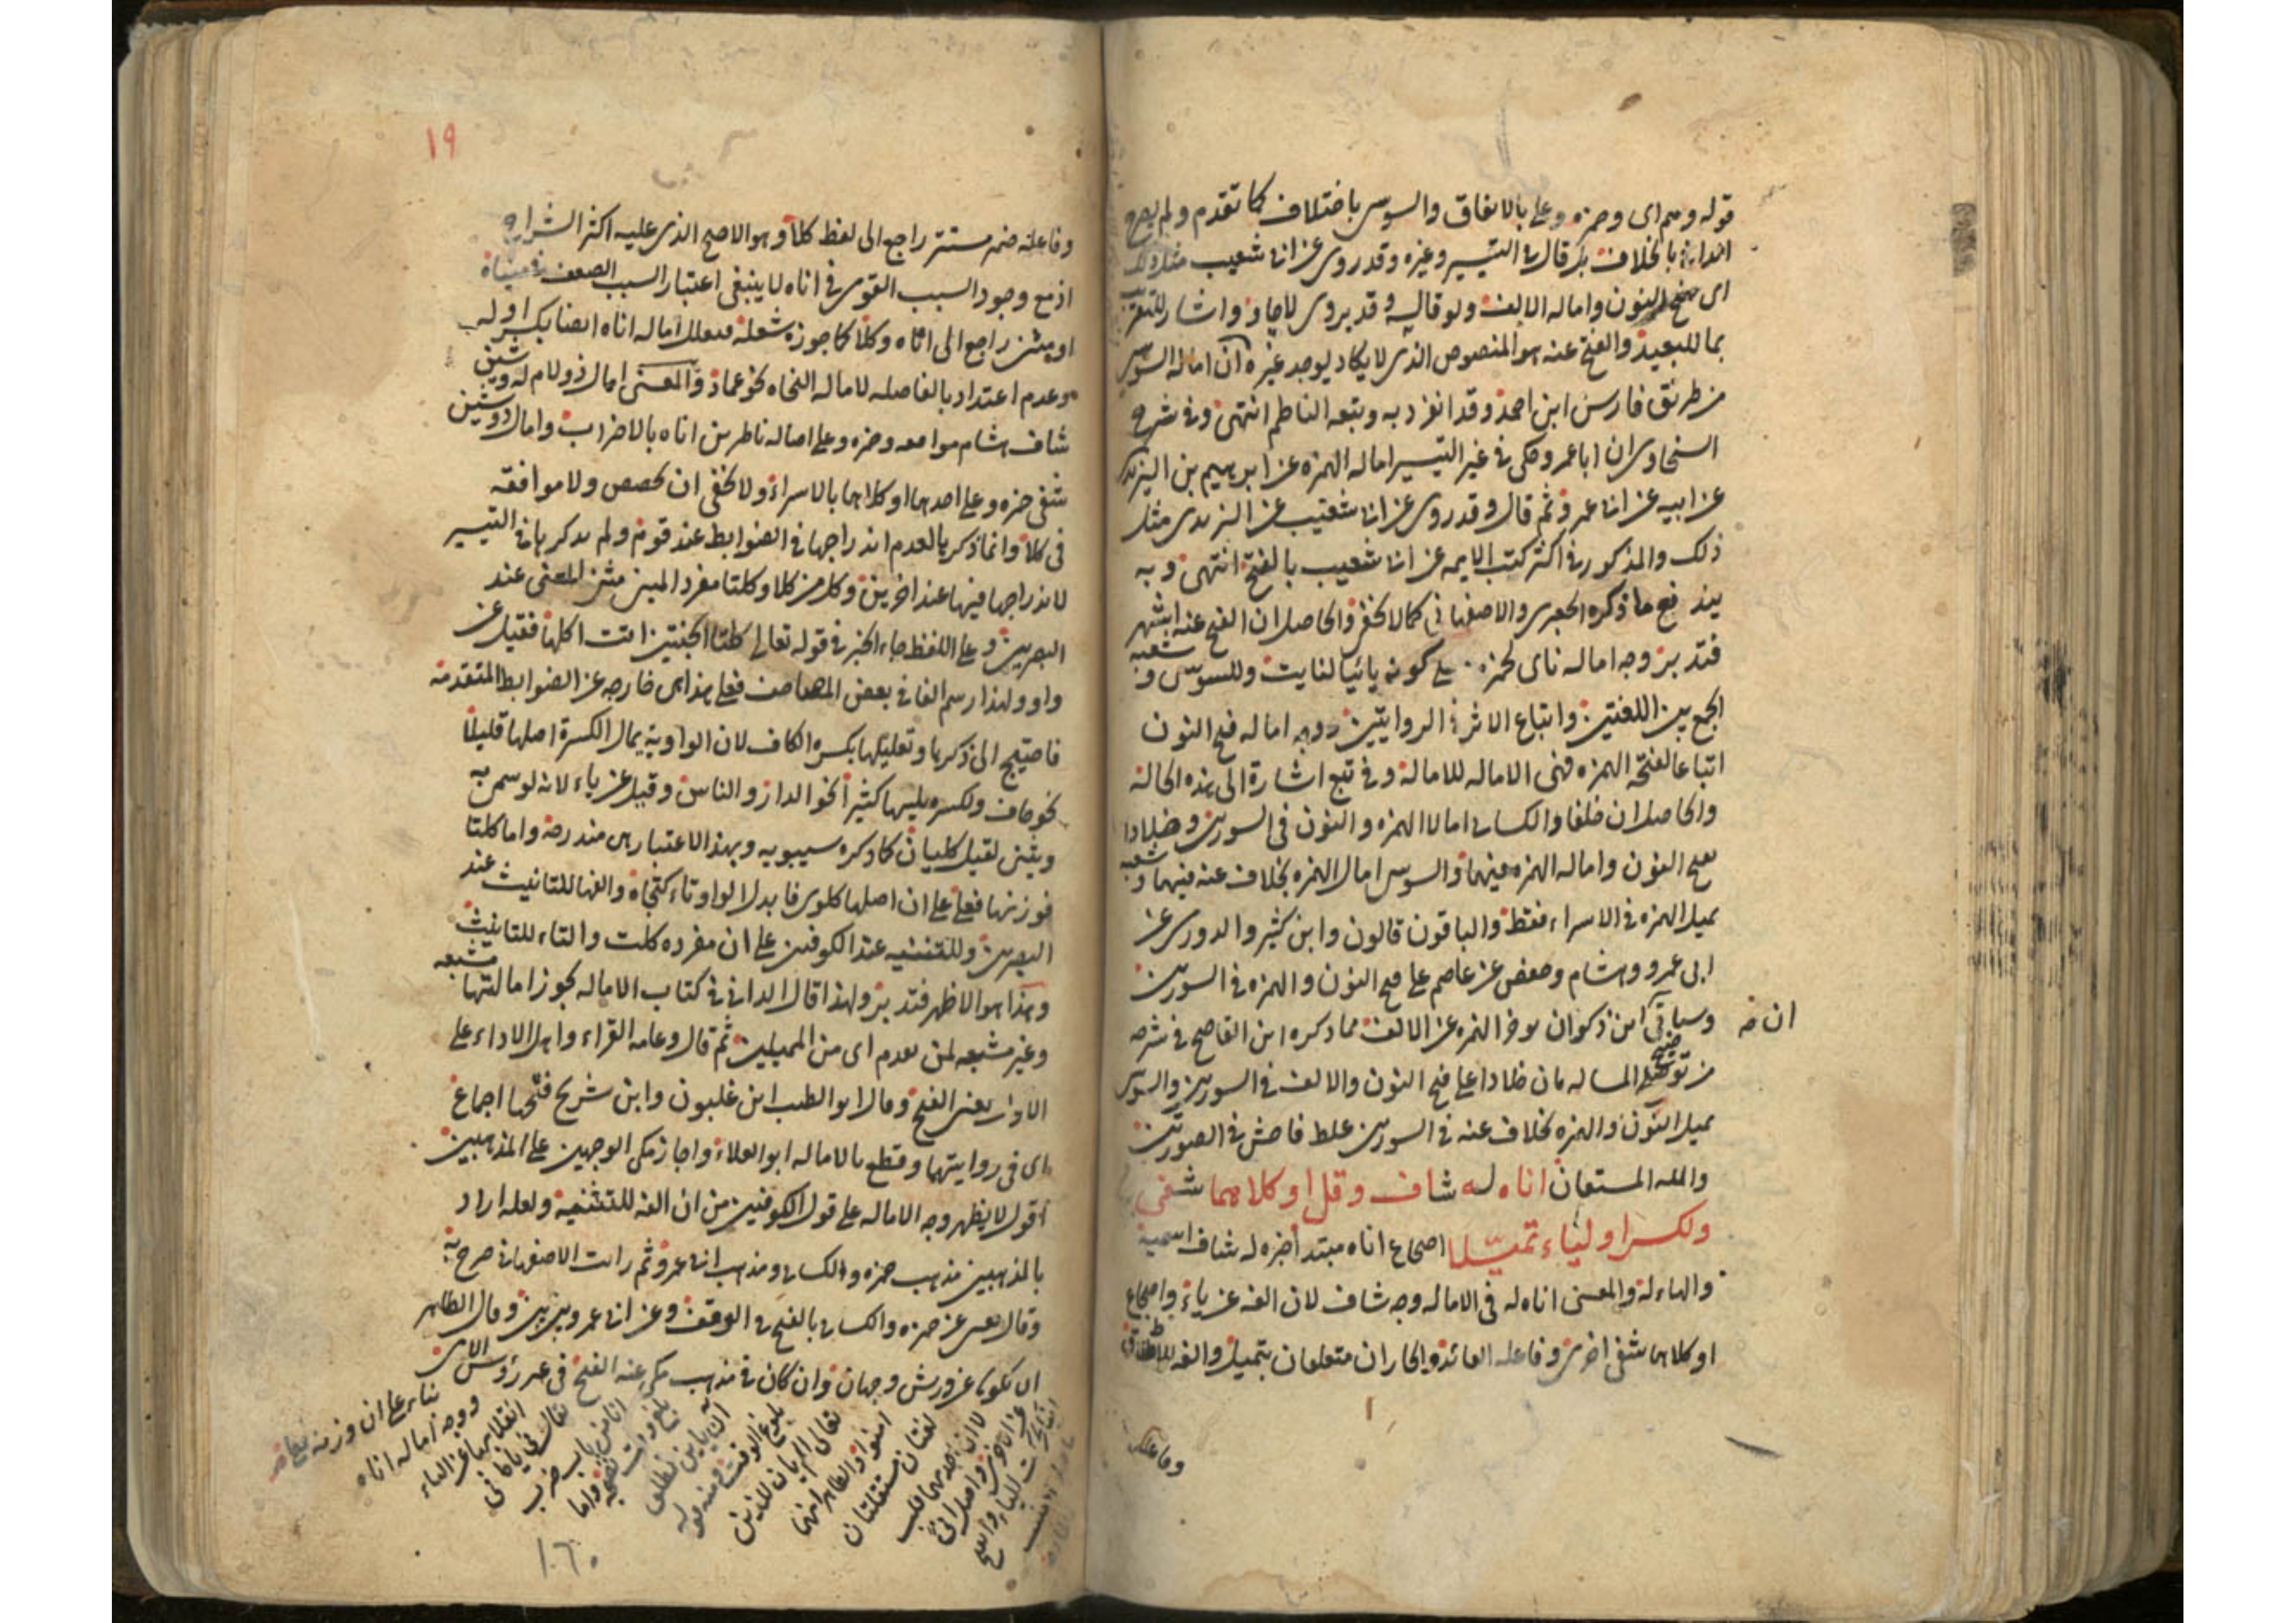 قوله وهم اى وحمزه وعلى بالاتفاق والسوسى باختلاف كما تقدم ولم يصرح
الدانى بالخلاف بل قال فى التيسير وغيره وقد روى عن ابى شعيب مثل ذلك
اى فتح النون واماله الالف ولو قال وقد يروى لاجاد واشار للتقريب
بما للبعيد والفتح عنه هو المنصوص الذى لا يكاد يوجد غيره اذ اماله السوسى
من طريق فارس ابن احمد وقد انفرد به وتبعه الناظم انتهى وفى شرح
السخاوى ان ابا عمرو حكى فى غير التيسير اماله الهمزه عن ابرهيم بن اليزيدى
عن ابيه عن ابى عمرو ثم قال وقد روى عن ابى شعيب عن اليزيدى مثل
ذلك والمذكور فى اكثر كتب الايمه عن ابى شعيب بالفتح انتهى وبه
يندفع ما ذكره الجعبرى والاصفهانى كما لا يخفى والحاصل ان الفتح عنه اشهر
فتدبر وجه اماله ناى لحمزه على كونه يائيا لنايت وللسوسى وشعبه
الجمع بين اللغتين واتباع الاثر فى الروايتين ووجه اماله فتح النون
اتباعا لفتحه الهمزه فهى الاماله للاماله وفى تبع اشارة الى هذه الحالة
والحاصل ان خلفا والكسائى امالا الهمزه والنون فى السورتين وخلادا
بفتح النون واماله الهمزه فيهما والسوسى امال الهمزه بخلاف عنه فيهما وشعبه
يميل الهمزه فى الاسراء فقط والباقون قالون وابن كثير والدورى عن
ابى عمرو وهشام وحفص عن عاصم على فتح النون والهمزه فى السورتين
وسياتى ان ابن ذكوان يوخر الهمزه عن الالف فما ذكره ابن القاصح فى شرحه
من توضيح المساله بان خلادا على فتح النون والالف فى السورتين والسوسى
يميل النون والهمزه بخلاف عنه فى السورتين غلط فاحش فى الصورتين
والله المستعان اناه له شاف وقل او كلاهما شفى
ولكسر او لياء تميّلا اضجاع اناه مبتدا خبره له شاف اسمية
والهاء له والمعنى اناه له فى الاماله وجه شاف لان الفه عن ياء واضجاع
او كلاهما شفى اخرى وفاعله العائد والجاران متعلقان بتميل والفه للاطلاق
وفاعله
١٩
وفاعله ضمير مستتر راجع الى لفظ كلا وهو الاصح الذى عليه اكثر الشراح
اذ مع وجود السبب القوى فى اناه لا ينبغى اعتبار السبب الضعيف
او مثنى راجع الى اناه وكلا كما جوزه شعله فيعلل اماله اناه ايضا بكسر اوله
وعدم اعتداد بالفاصله لاماله النحاه نحو عماد والمعنى امال ذو لام له وشين
شاف هشام موافقه وحمزه وعلى اماله ناظرين اناه بالاحزاب وامال ذو شين
شفى حمزه وعلى احدهما او كلاهما بالاسراء ولا يخفى ان يخصص ولا موافقه
فى كلا وانما ذكرها لعدم اندراجها فى الضوابط عند قوم ولم يذكرها فى التيسير
لاندراجها فيها عند اخرين وكل من كلا وكلتا مفرد المبنى مثنى المعنى عند
البصريين وعلى اللفظ جاء الخبر فى قوله تعالى كلتا الجنتين اتت اكلها فقيل عن
واو ولهذا رسم الفا فى بعض المصاحف فعلى هذا هى خارجه عن الضوابط المتقدمة
فاحتيج الى ذكرها وتعليلها بكسره الكاف لان الواوية يمال لكسرة اصلها قليلا
نحو خاف ولكسره يليها كثيرا نحو الدار والناس وقيل عن ياء لانه لو سمى به
وثنى لقيل كليان كما ذكره سيبويه وبهذا الاعتبار هى مندرجة واما كلتا
فوزنها فعلى على ان اصلها كلوى فابدل الواو تاء كتجاه والفها للتانيث عند
البصريين وللتثنيه عند الكوفيين على ان مفرده كلت والتاء للتانيث
وهذا هو الاظهر فتدبر ولهذا قال الدانى فى كتاب الاماله يجوز امالتها مشبعه
وغير مشبعه لمن تقدم اى من المميلين ثم قال وعامه القراء واهل الاداء على
الاول يعنى الفتح وقال ابو الطيب ابن غلبون وابن شريح فتحها اجماع
اى فى روايتهما وقطع بالاماله ابو العلاء واجاز مكى الوجهين على المذهبين
اقول لا يظهر وجه الاماله على قول الكوفيين من ان الفه للتثنية ولعله اراد
بالمذهبين مذهب حمزه والكسائى ومذهب ابى عمرو ثم رايت الاصفهانى صرح به
وقال يعنى عن حمزه والكسائى بالفتح فى الوقف وعن ابى عمرو بين بين وقال الظاهر
ان يكون عن ورش وجهان وان كان فى مذهب مكى عنه الفتح فى غير رؤس الاى
بناء على ان وزنه
ووجه اماله اناه
انقلابها عن الياء
يقال انى يانى
١٦٠